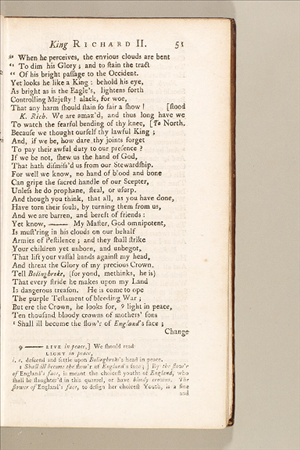 King RICHARD II. 51
" When he perceives, the envious clouds are bent
" To dim his Glory; and to stain the tract
" Of his bright passage to the Occident.
Yet looks he like a King: behold his eye,
As bright as is the Eagle's, lightens forth
Controlling Majesty! alack, for woe,
That any harm should stain so fair a show! [stood
K. Rich. We are amaz'd, and thus long have we
To watch the fearful bending of thy knee, [To North.
Because we thought ourself thy lawful King;
And, if we be, how dare thy joints forget
To pay their awful duty to our presence?
If we be not, shew us the hand of God,
That hath dismiss'd us from our Stewardship.
For well we know, no hand of blood and bone
Can gripe the sacred handle of our Scepter,
Unless he do prophane, steal, or usurp.
And though you think, that all, as you have done,
Have torn their souls, by turning them from us,
And we are barren, and bereft of friends:
Yet know, —— My Master, God omnipotent,
Is must'ring in his clouds on our behalf
Armies of Pestilence; and they shall strike
Your children yet unborn, and unbegot,
That lift your vassal hands against my head,
And threat the Glory of my precious Crown.
Tell Bolingbroke, (for yond, methinks, he is)
That every stride he makes upon my Land
Is dangerous treason. He is come to ope
The purple Testament of bleeding War;
But ere the Crown, he looks for, 9 light in peace,
Ten thousand bloody crowns of mothers' sons
1 Shall ill become the flow'r of England's face;
Change
9 —— LIVE in peace,] We should read
LIGHT in peace,
i. e. descend and settle upon Bolingbroke's head in peace.
1 Shall ill become the flow'r of England's face;] By the flow'r
of England's face, is meant the choicest youths of England, who
shall be slaughter'd in this quarrel, or have bloody crowns. The
flower of England's face, to design her choicest Youth, is a fine
and